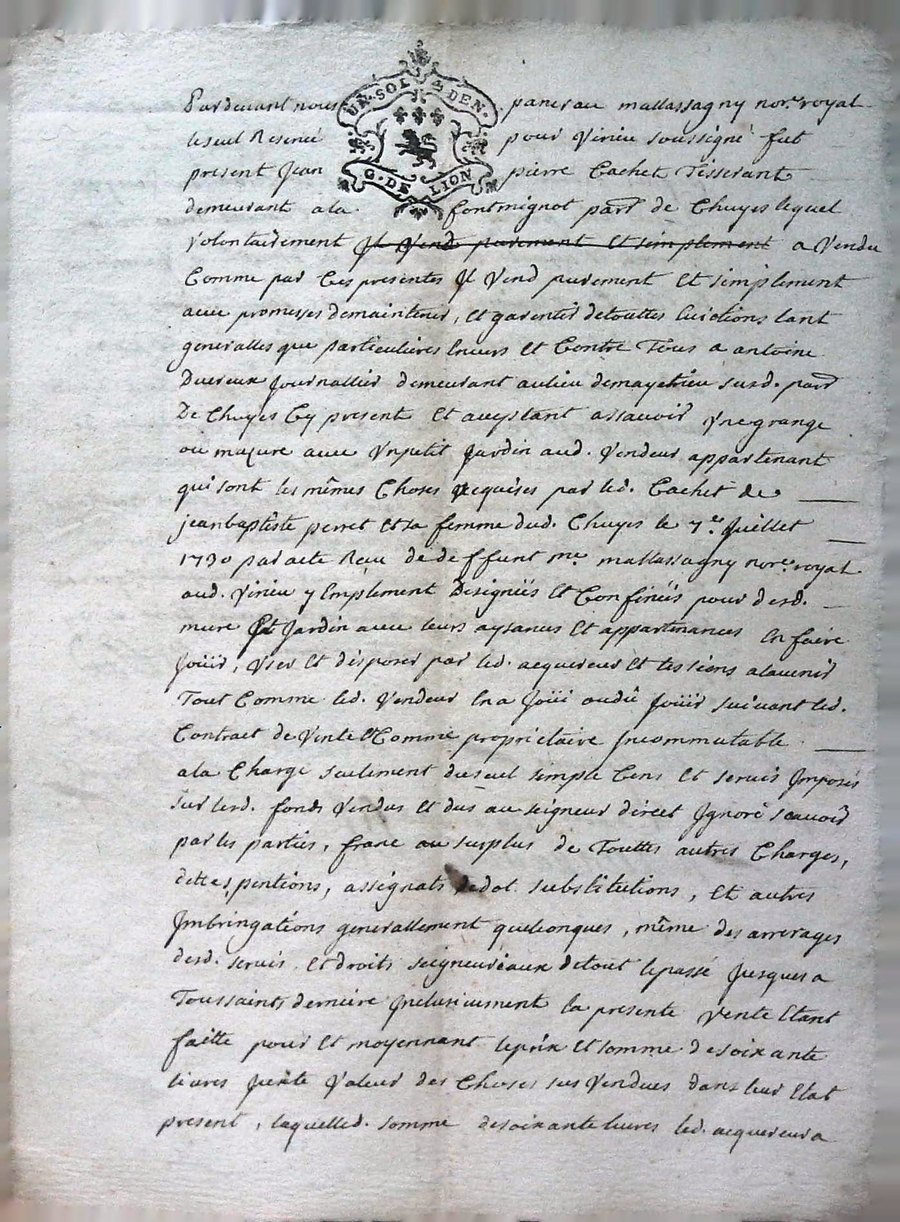 UN·SOL 4 DEN·
G·DE LION
Pardevant nous pancrau mallassagny nore. royal
le seul Reservé pour Virieu soussigné fut
present Jean pierre Cachet Tisserant
demeurant a la fontmignot parr. de Chuyes lequel
volontairement Il Vend purement Et simplement a Vendu
Comme par Ces presentes Il Vend purement Et simplement
avec promesses demaintenir, Et garentir detouttes Evictions tant
generalles que particulieres Envers Et Contre Tous a antoine
Journallier demeurant aulieu susd. parr.
De Chuyes Cy present Et aceptant assavoir Vne grange
ou mazure avec Vnpetit Jardin aud. Vendeur appartenant
qui sont les mêmes Choses acquises par led. Cachet de
jean baptiste perret Et sa femme dud. Chuyes le 7e. Juillet
par acte Reçu de deffunt me. mallassagny nore. royal
aud. Virieu y Emplement Designées Et Confinées pour desd.
mure Et Jardin avec leurs aysances Et appartenances En faire
Joüir, Vser Et disposer par led. acquereur Et les siens alavenir
Tout Comme led. Vendeur En a Joüi oudû Joüir suivant led.
Contract de Vente Et Comme proprietaire Incommutable
ala Charge seulement duseul simple Cens Et servis Imposés
sur lesd. fonds Vendus Et dus au seigneur direct Ignoré scavoir
par les parties, franc au surplus de Touttes autres Charges,
dettes, pentions, assignats dedot. substitutions, Et autres
Imbringations generallement quelconques, même des arrerages
desd. servis, Et droits seigneuriaux detout lepassé Jusques a
Toussaints derniere Inclusivement la presente Vente Etant
faitte pour Et moyennant leprix Et somme desoixante
livres Juste Valeur des Choses sus Vendues dans leur Etat
present, laquelled. somme desoixante livres led. acquereur a